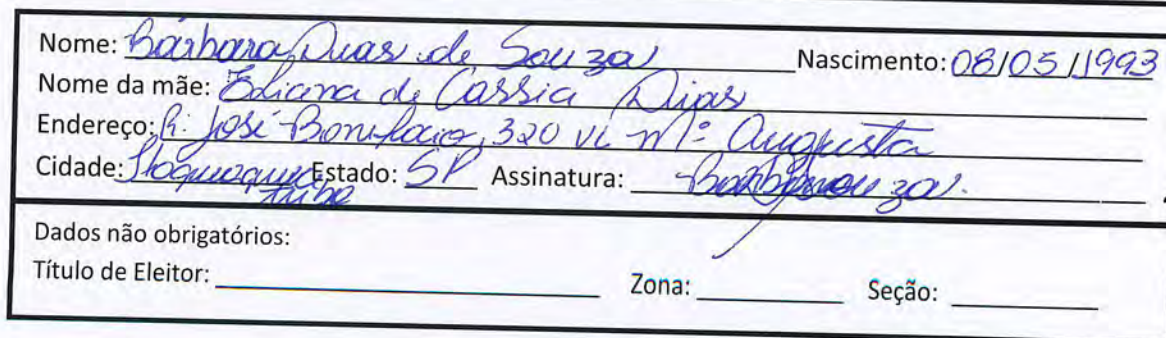 Nome: Bárbara Dias de Souza Nascimento: 08/05/1993
Nome da mãe: Eliana de Cassia Dias
Endereço: R. José Bonifacio, 320 VL Mª Augusta
Cidade: Itaquaquecetuba Estado: SP Assinatura:
Dados não obrigatórios:
Título de Eleitor: Zona: Seção: